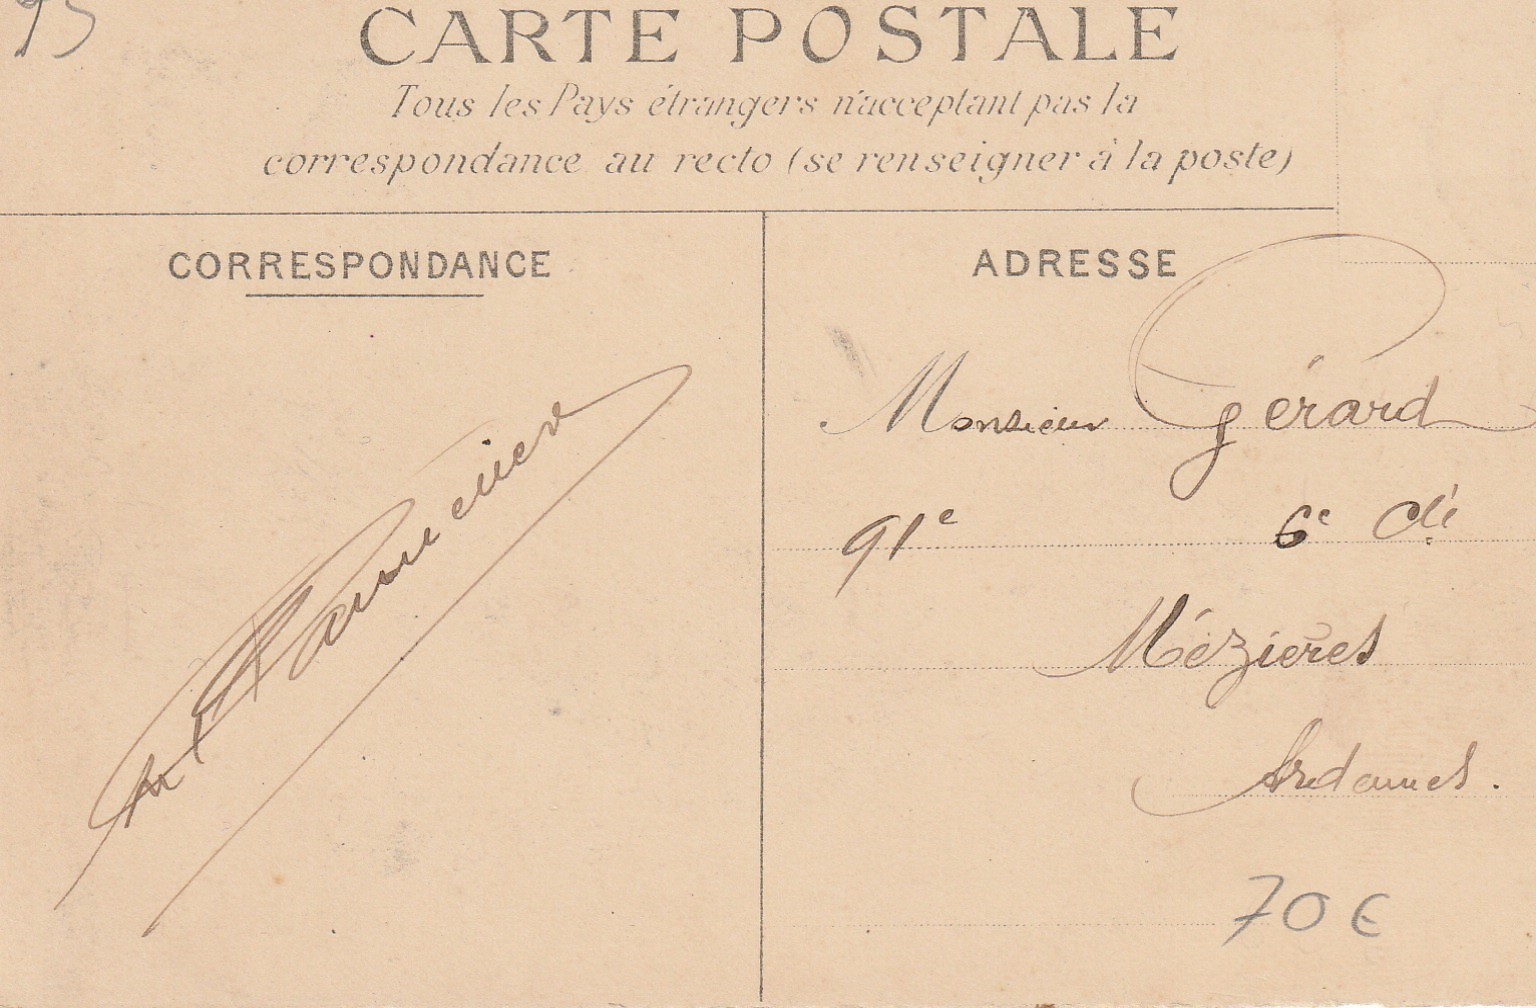 95
CARTE POSTALE
Tous les Pays étrangers n'acceptant pas la
correspondance au recto (se renseigner à la poste)
CORRESPONDANCE
ADRESSE
Monsieur Gérard
91e 6e Cie
Mézières
Ardennes.
70 €